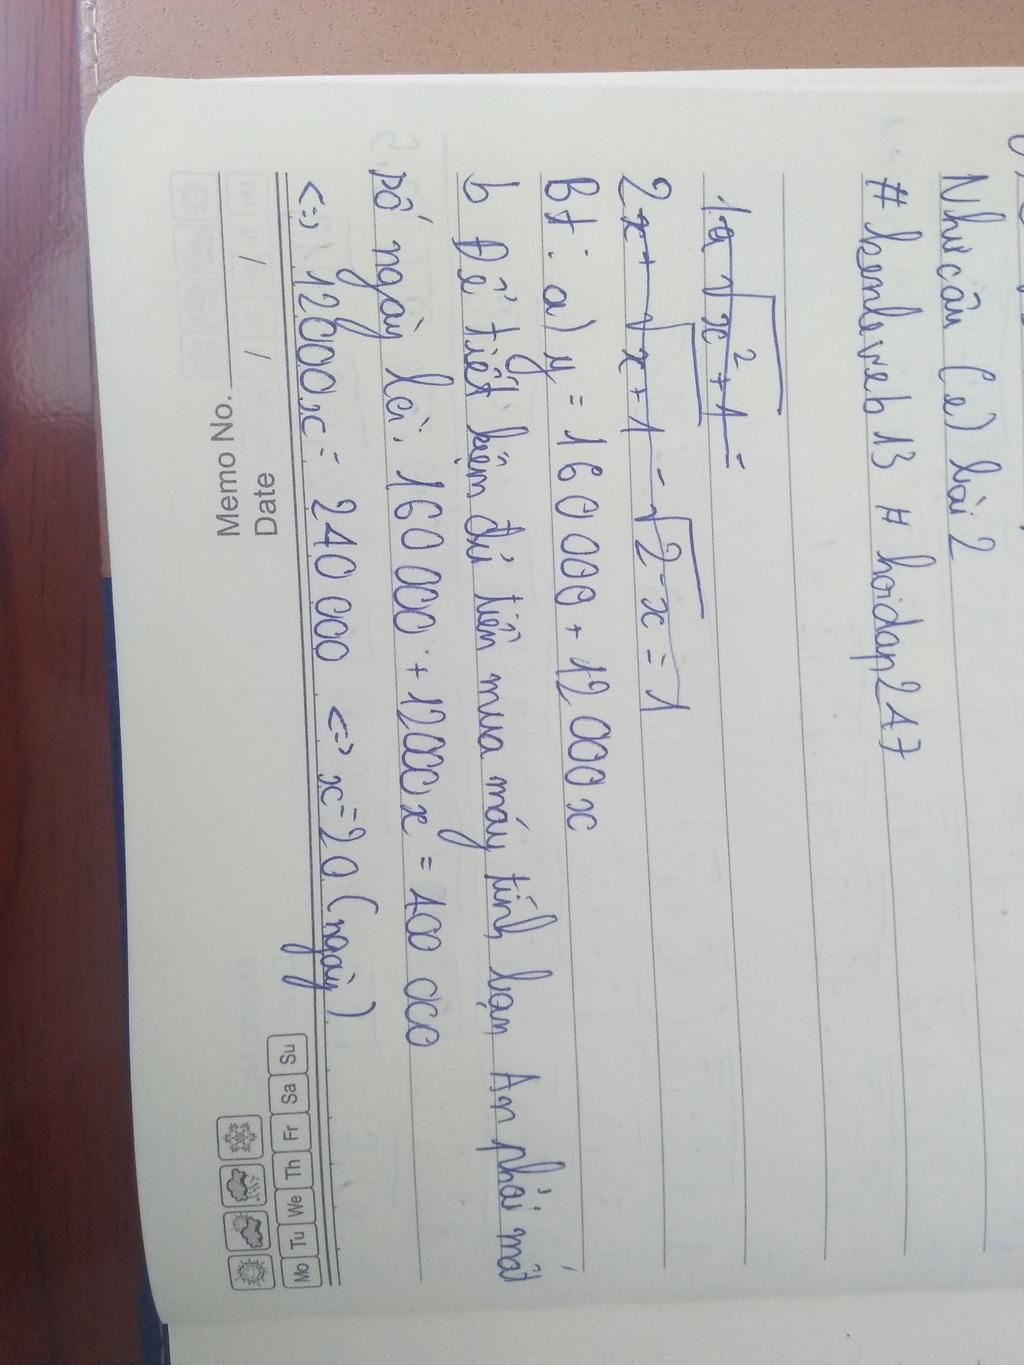 Như câu (e) bài 2
#kenleweb13 #hoidap247
1a √x²+1 =
2x+√x+1 - √2-x = 1
Bt: a) y = 160 000 + 12 000x
b Để tiết kiệm đủ tiền mua máy tính bạn An phải mất
số ngày là: 160 000 + 12000x = 400 000
<=> 12000x = 240 000 <=> x = 20 (ngày)
Memo No.
Date / /
Mo Tu We Th Fr Sa Su